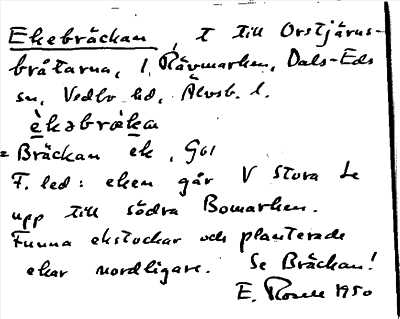 Ekebräckan, t till Orstjärns-
bråtarna, 1, Rävmarken, Dals-Eds
sn, Vedbo hd, Älvsb. l.
èkabrä̀ka
= Bräckan ek, G61
F. led: eken går V Stora Le
upp till södra Bomarken.
Funna ekstockar och planterade
ekar nordligare. Se Bräckan!
E. 1950